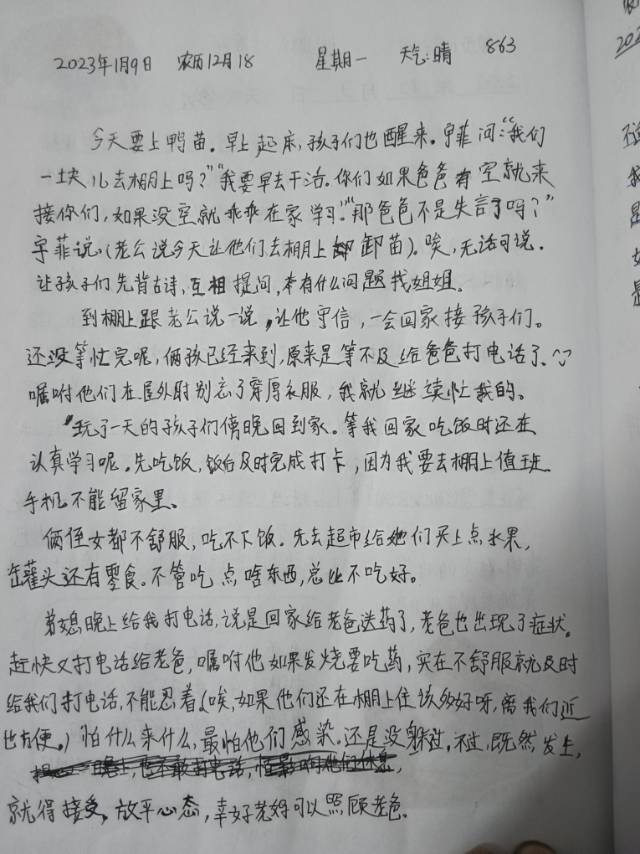 2023年1月9日 农历12月18 星期一 天气:晴 863
今天要上鸭苗。早上起床,孩子们也醒来。宇菲问:“我们
一块儿去棚上吗?”“我要早去干活。你们如果爸爸有空就来
接你们,如果没空就乖乖在家学习。”“那爸爸不是失言了吗?”
宇菲说。(老公说今天让他们去棚上卸苗)。唉,无话可说。
让孩子们先背古诗,互相提问,有什么问题找姐姐。
到棚上跟老公说一说,让他守信,一会回家接孩子们。
还没等忙完呢,俩孩已经来到,原来是等不及给爸爸打电话了。
嘱咐他们在屋外时别忘了穿厚衣服,我就继续忙我的。
玩了一天的孩子们傍晚回到家。等我回家吃饭时还在
认真学习呢。先吃饭,饭后及时完成打卡,因为我要去棚上值班
手机不能留家里。
俩侄女都不舒服,吃不下饭。先去超市给她们买上点水果,
罐头还有零食。不管吃点啥东西,总比不吃好。
弟媳晚上给我打电话,说是回家给老爸送药了,老爸也出现了症状。
赶快又打电话给老爸,嘱咐他如果发烧要吃药,实在不舒服就及时
给我们打电话,不能忍着(唉,如果他们还在棚上住该多好呀,离我们近
也方便。)怕什么来什么,最怕他们感染,还是没躲过,不过,既然发生,
就得接受。放平心态,幸好老妈可以照顾老爸。